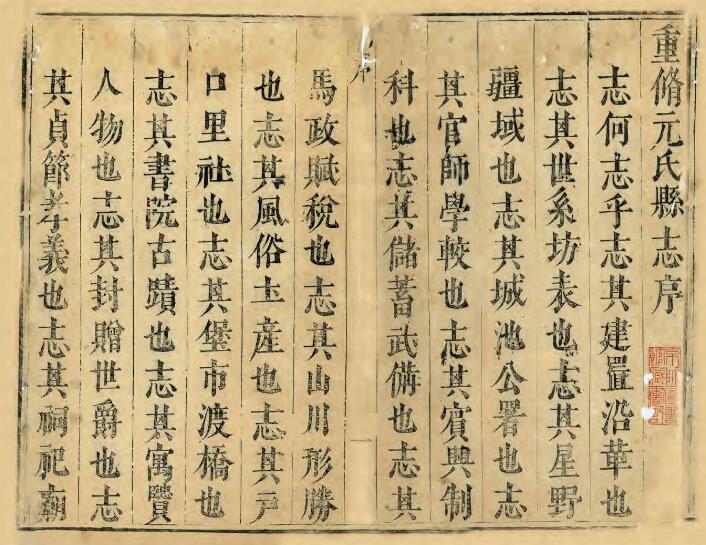 重脩元氏縣志序
志何志乎志其建置沿革也
志其世系坊表也志其星野
疆域也志其城池公署也志
其官師學較也志其賓興制
科也志其儲蓄武備也志其
馬政賦稅也志其山川形勝
也志其風俗土產也志其戶
口里社也志其堡市渡橋也
志其書院古蹟也志其寓賢
人物也志其封贈世爵也志
其貞節孝義也志其祠祀廟